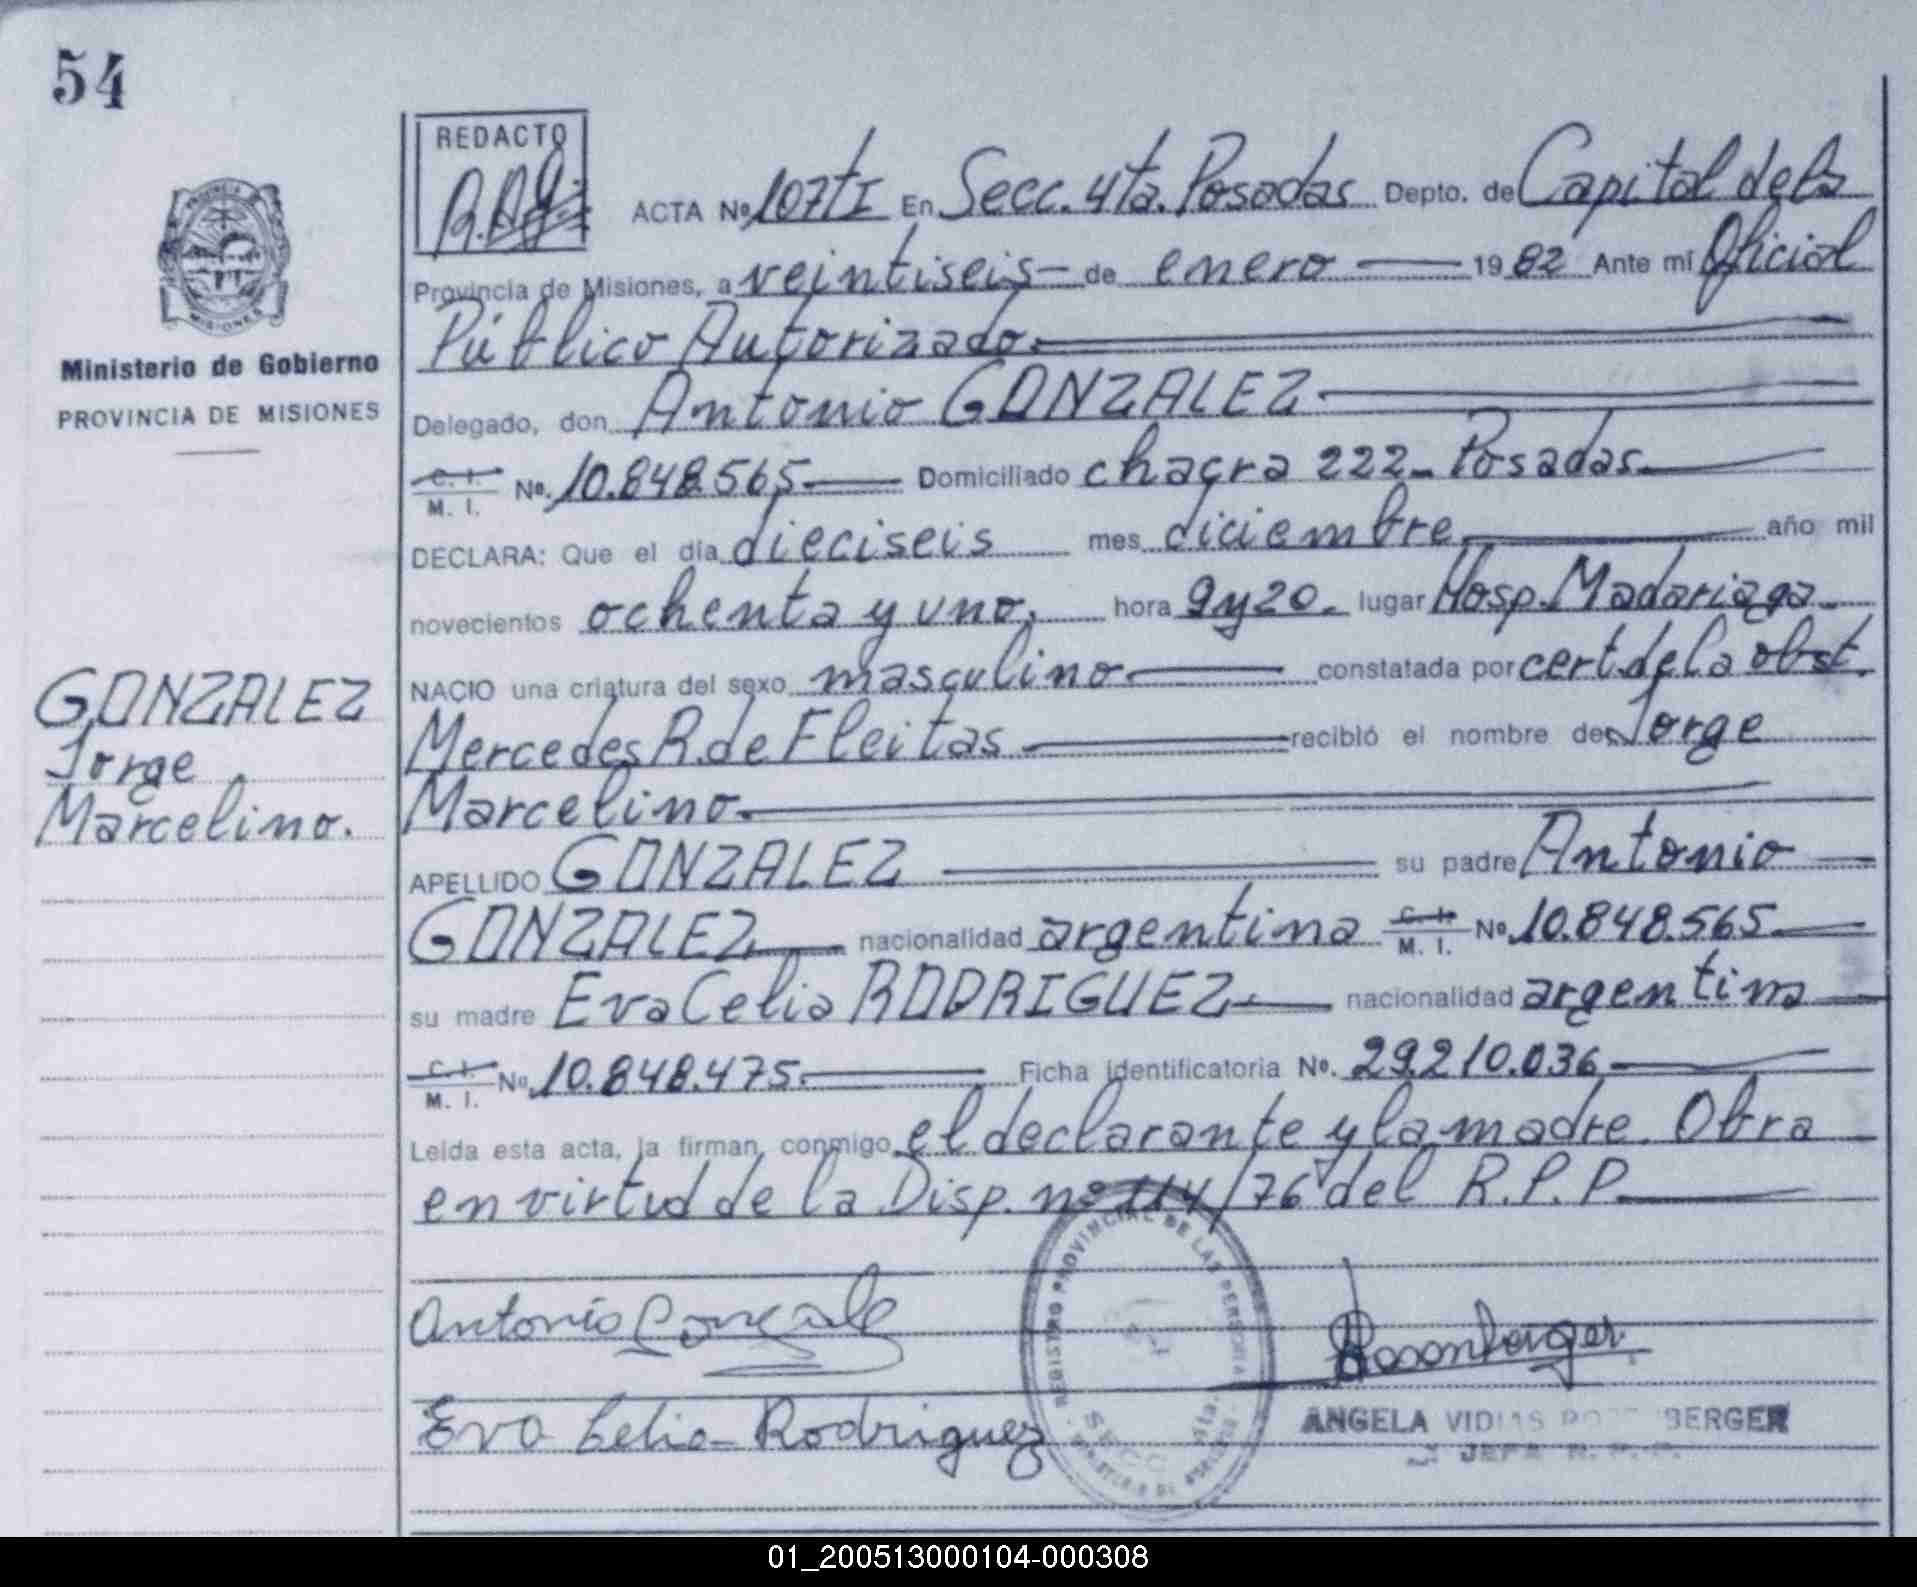 54
REDACTO
ACTA Nº 107tI En Secc. 4ta. Posadas Depto. de Capital de la
Provincia de Misiones, a veintiseis de enero 1982 Ante mí Oficial
Público Autorizado.
Delegado, don Antonio GONZALEZ
C. I.
M. I. Nº. 10.848.565 Domiciliado chacra 222 - Posadas.
DECLARA: Que el día dieciseis mes diciembre año mil
novecientos ochenta y uno, hora 9 y 20. lugar Hosp. Madariaga.
NACIO una criatura del sexo masculino constatada por cert. de la obst.
Mercedes R. de Fleitas recibió el nombre de Jorge
Marcelino.
APELLIDO GONZALEZ su padre Antonio
GONZALEZ nacionalidad argentina C. I.
M. I. Nº 10.848.565
su madre Eva Celia RODRIGUEZ nacionalidad argentina
C. I.
M. I. Nº 10.848.475. Ficha identificatoria Nº. 29.210.036
Leída esta acta, la firman conmigo el declarante y la madre. Obra
en virtud de la Disp. nº 114/76 del R.P.P.
Antonio Gonzale
Eva Celia Rodriguez
Rosenberger
REGISTRO PROVINCIAL DE LAS PERSONAS
SECC 4ta.
ANGELA BERGER
JEFA R. P. P.
PROVINCIA
MISIONES
Ministerio de Gobierno
PROVINCIA DE MISIONES
GONZALEZ
Jorge
Marcelino.
01_200513000104-000308